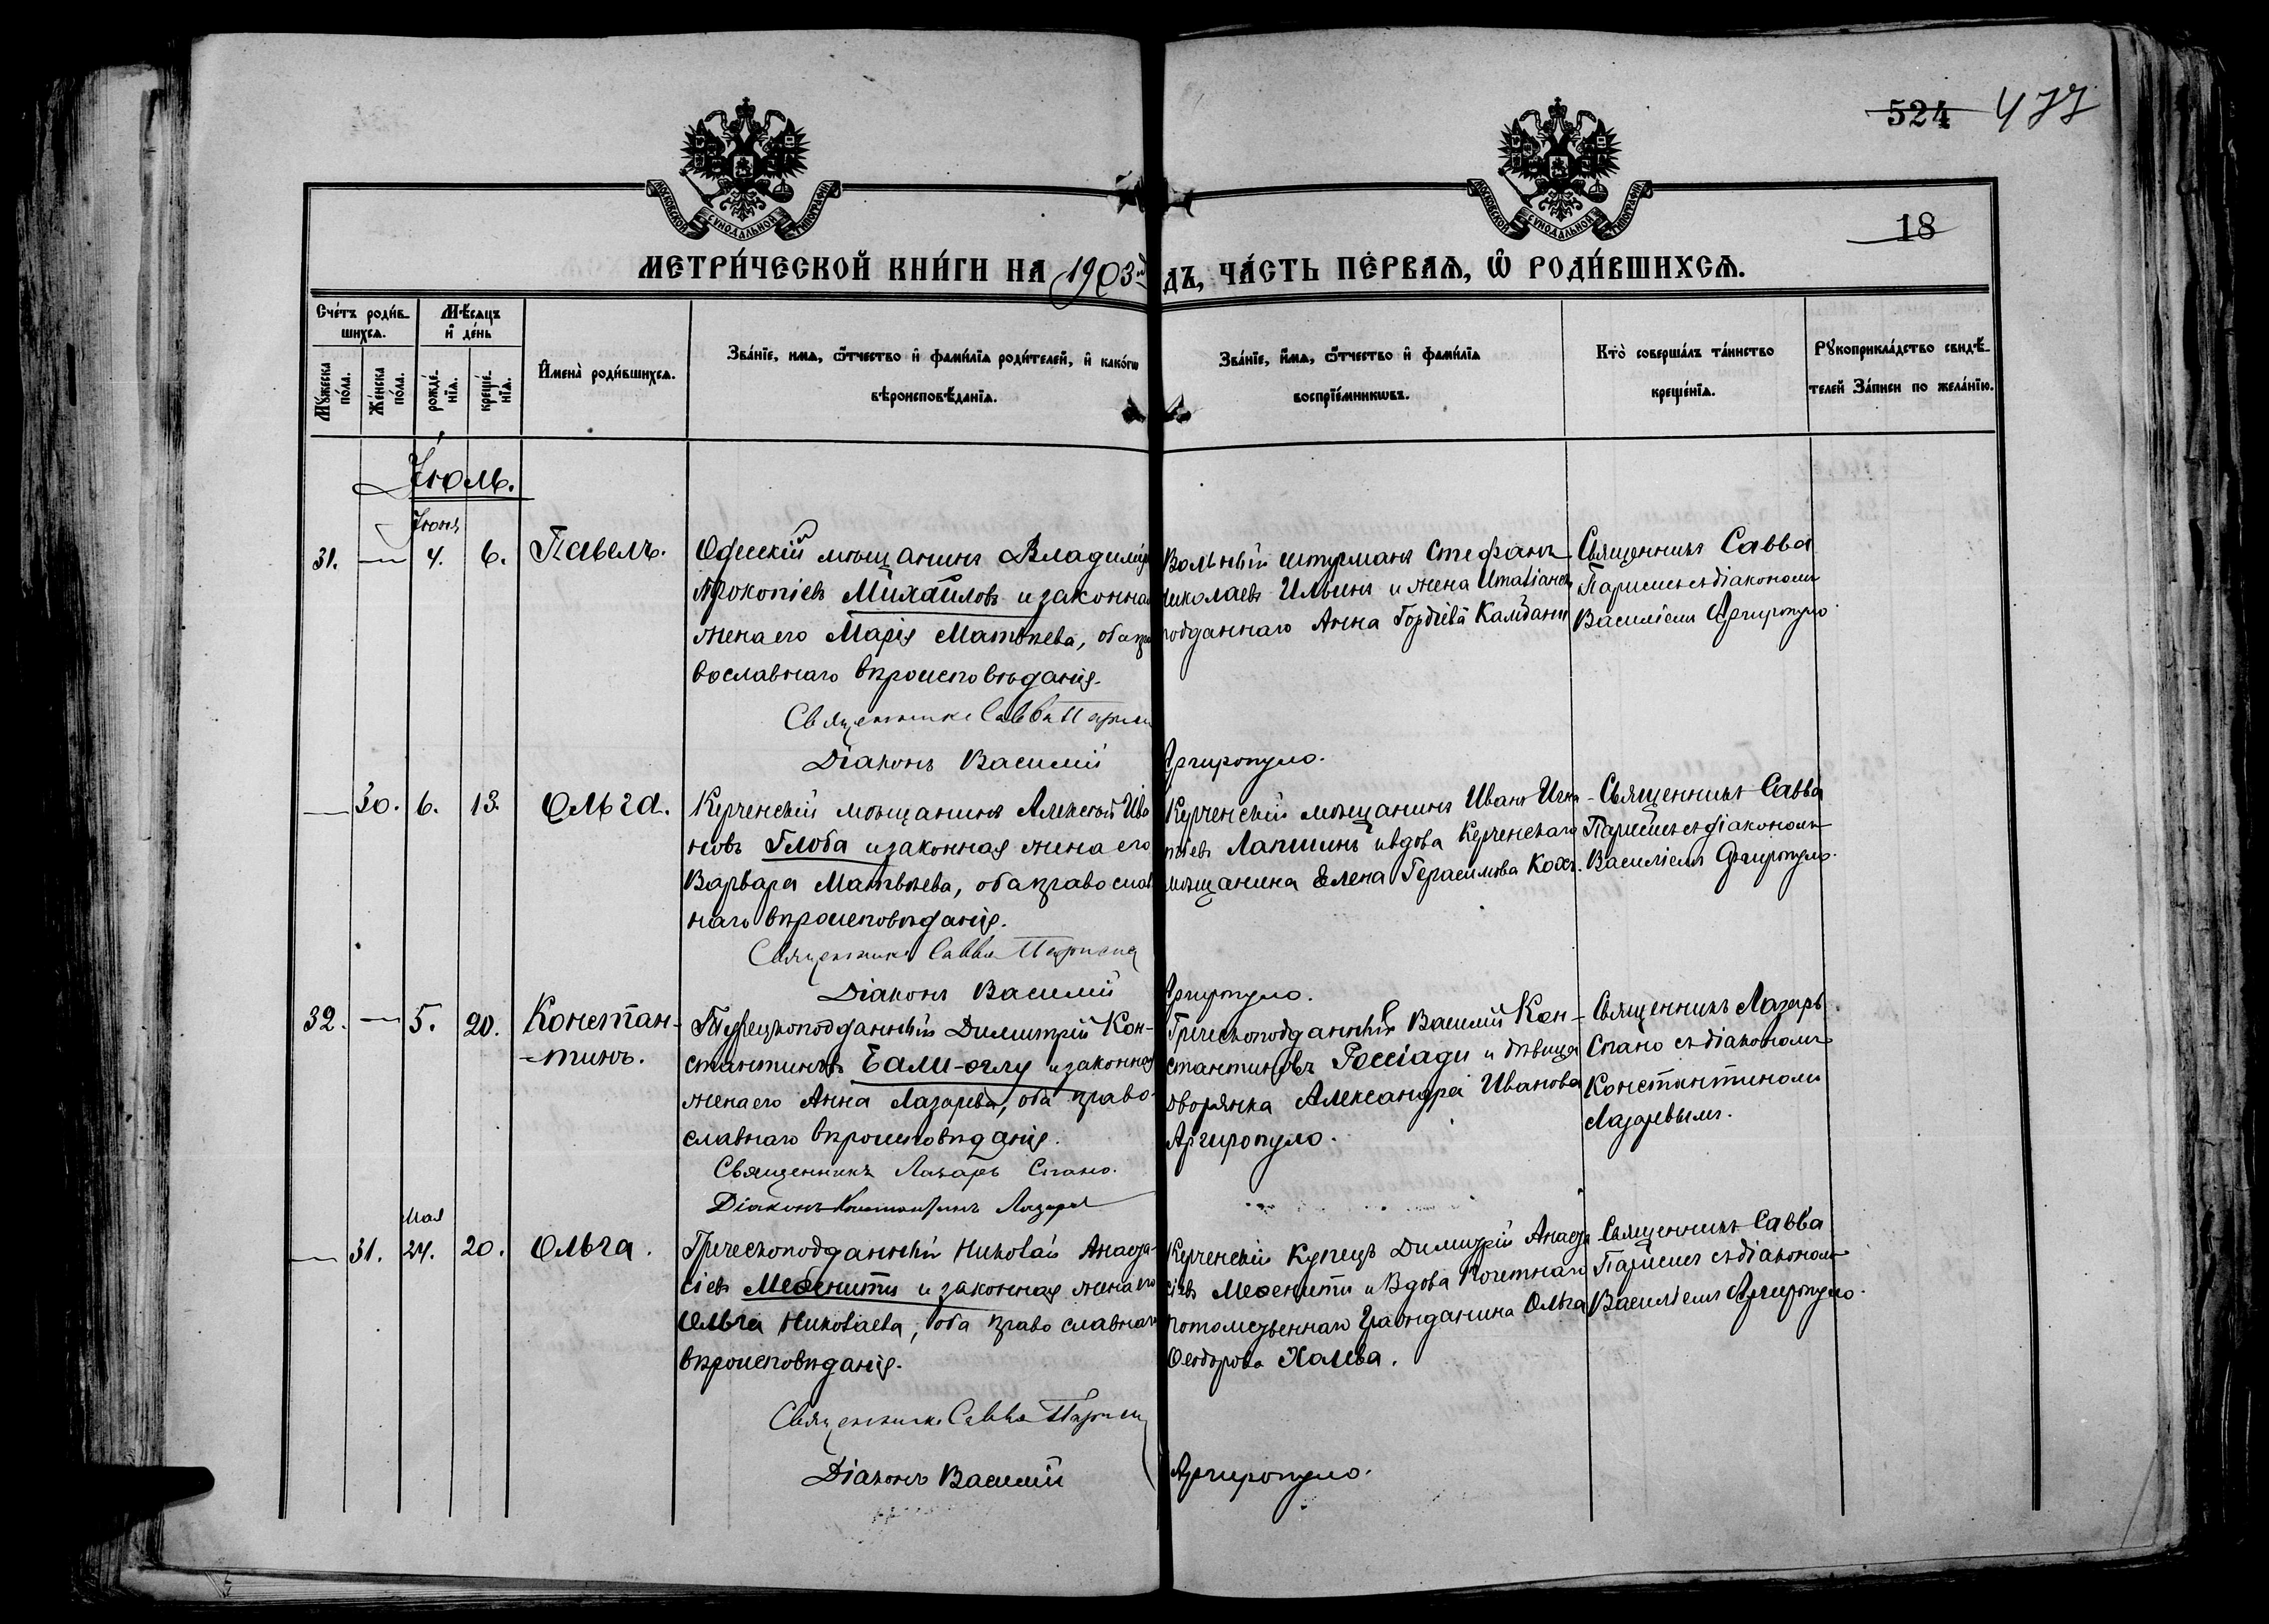 524 477
МОСКОВСКОЙ СУНОДАЛЬНОЙ ТИПОГРАФIИ
МОСКОВСКОЙ СУНОДАЛЬНОЙ ТИПОГРАФIИ
18
МЕТРИ́ЧЕСКОЙ КНИ́ГИ НА 1903 ДЪ, ЧА́СТЬ ПЕ́РВАѦ, Ѡ҆ РОДИ́ВШИХСѦ.
Сче́тъ роди́в-
шихсѧ.
Мѣ́сѧцъ
и҆ де́нь
Мꙋ́жеска
по́ла.
Же́нска
по́ла.
рожде́-
нїѧ.
креще́-
нїѧ.
И҆мена̀ роди́вшихсѧ.
Зва́нїе, имѧ, ѻ҆́тчество и҆ фами́лїѧ роди́телей, и҆ како́гѡ
вѣроисповѣ́данїѧ.
Зва́нїе, и҆́мѧ, ѻ҆́тчество и҆ фами́лїѧ
воспрїе́мникѡвъ.
Кто̀ соверша́лъ та́инство
креще́нїѧ.
Рꙋкоприкла́дство свидѣ́-
телей За́писи по жела́нїю.
Iюль.
Iюня
31. — 4. 6. Павелъ.
Одесскiй мѣщанинъ Владимiръ
Прокопiевъ Михайловъ и законная
жена его Марiя Матвѣева, оба пра
вославнаго вѣроисповѣданiя.
Священникъ Савва Париси
Дiаконъ Василiй Аргиропуло.
Вольный штурманъ Стефанъ
Николаевъ Ильинъ и жена Италiанск
подданнаго Анна Гордiева Камбани
Священникъ Савва
Парисисъ съ дiакономъ
Василiемъ Аргиропуло.
— 30. 6. 13. Ольга.
Керченскiй мѣщанинъ Алексѣй Ива
новъ Глоба и законная жена его
Варвара Матвѣева, оба православ
наго вѣроисповѣданiя.
Священникъ Савва Париси
Дiаконъ Василiй Аргиропуло.
Керченскiй мѣщанинъ Иванъ Игна
тiевъ Лапшинъ и вдова Керченскаго
мѣщанина Елена Герасимова Кохъ.
Священникъ Савва
Парисисъ съ дiакономъ
Василiемъ Аргиропуло.
32. — 5. 20. Констан-
-тинъ.
Турецкоподданный Димитрiй Кон-
стантиновъ Бали-оглу и законная
жена его Анна Лазарева, оба право-
славнаго вѣроисповѣданiя.
Священникъ Лазарь Спано.
Дiаконъ Константинъ Лазаревъ
Греческоподданный Василiй Кон-
стантиновъ Россiади и дѣвица
дворянка Александра Иванова
Аргиропуло.
Священникъ Лазарь
Спано съ дiакономъ
Константиномъ
Лазаревымъ.
Мая
— 31. 24. 20. Ольга.
Греческоподданный Николай Анаста-
сiевъ Мефенити и законная жена его
Ольга Николаева, оба православнаго
вѣроисповѣданiя.
Священникъ Савва Париси
Дiаконъ Василiй Аргиропуло.
Керченскiй Купецъ Димитрiй Анаста
сiевъ Мефенити и Вдова Почетнаго
потомственнаго Гражданина Ольга
Ѳеодорова Халева.
Священникъ Савва
Парисисъ съ дiакономъ
Василiемъ Аргиропуло.